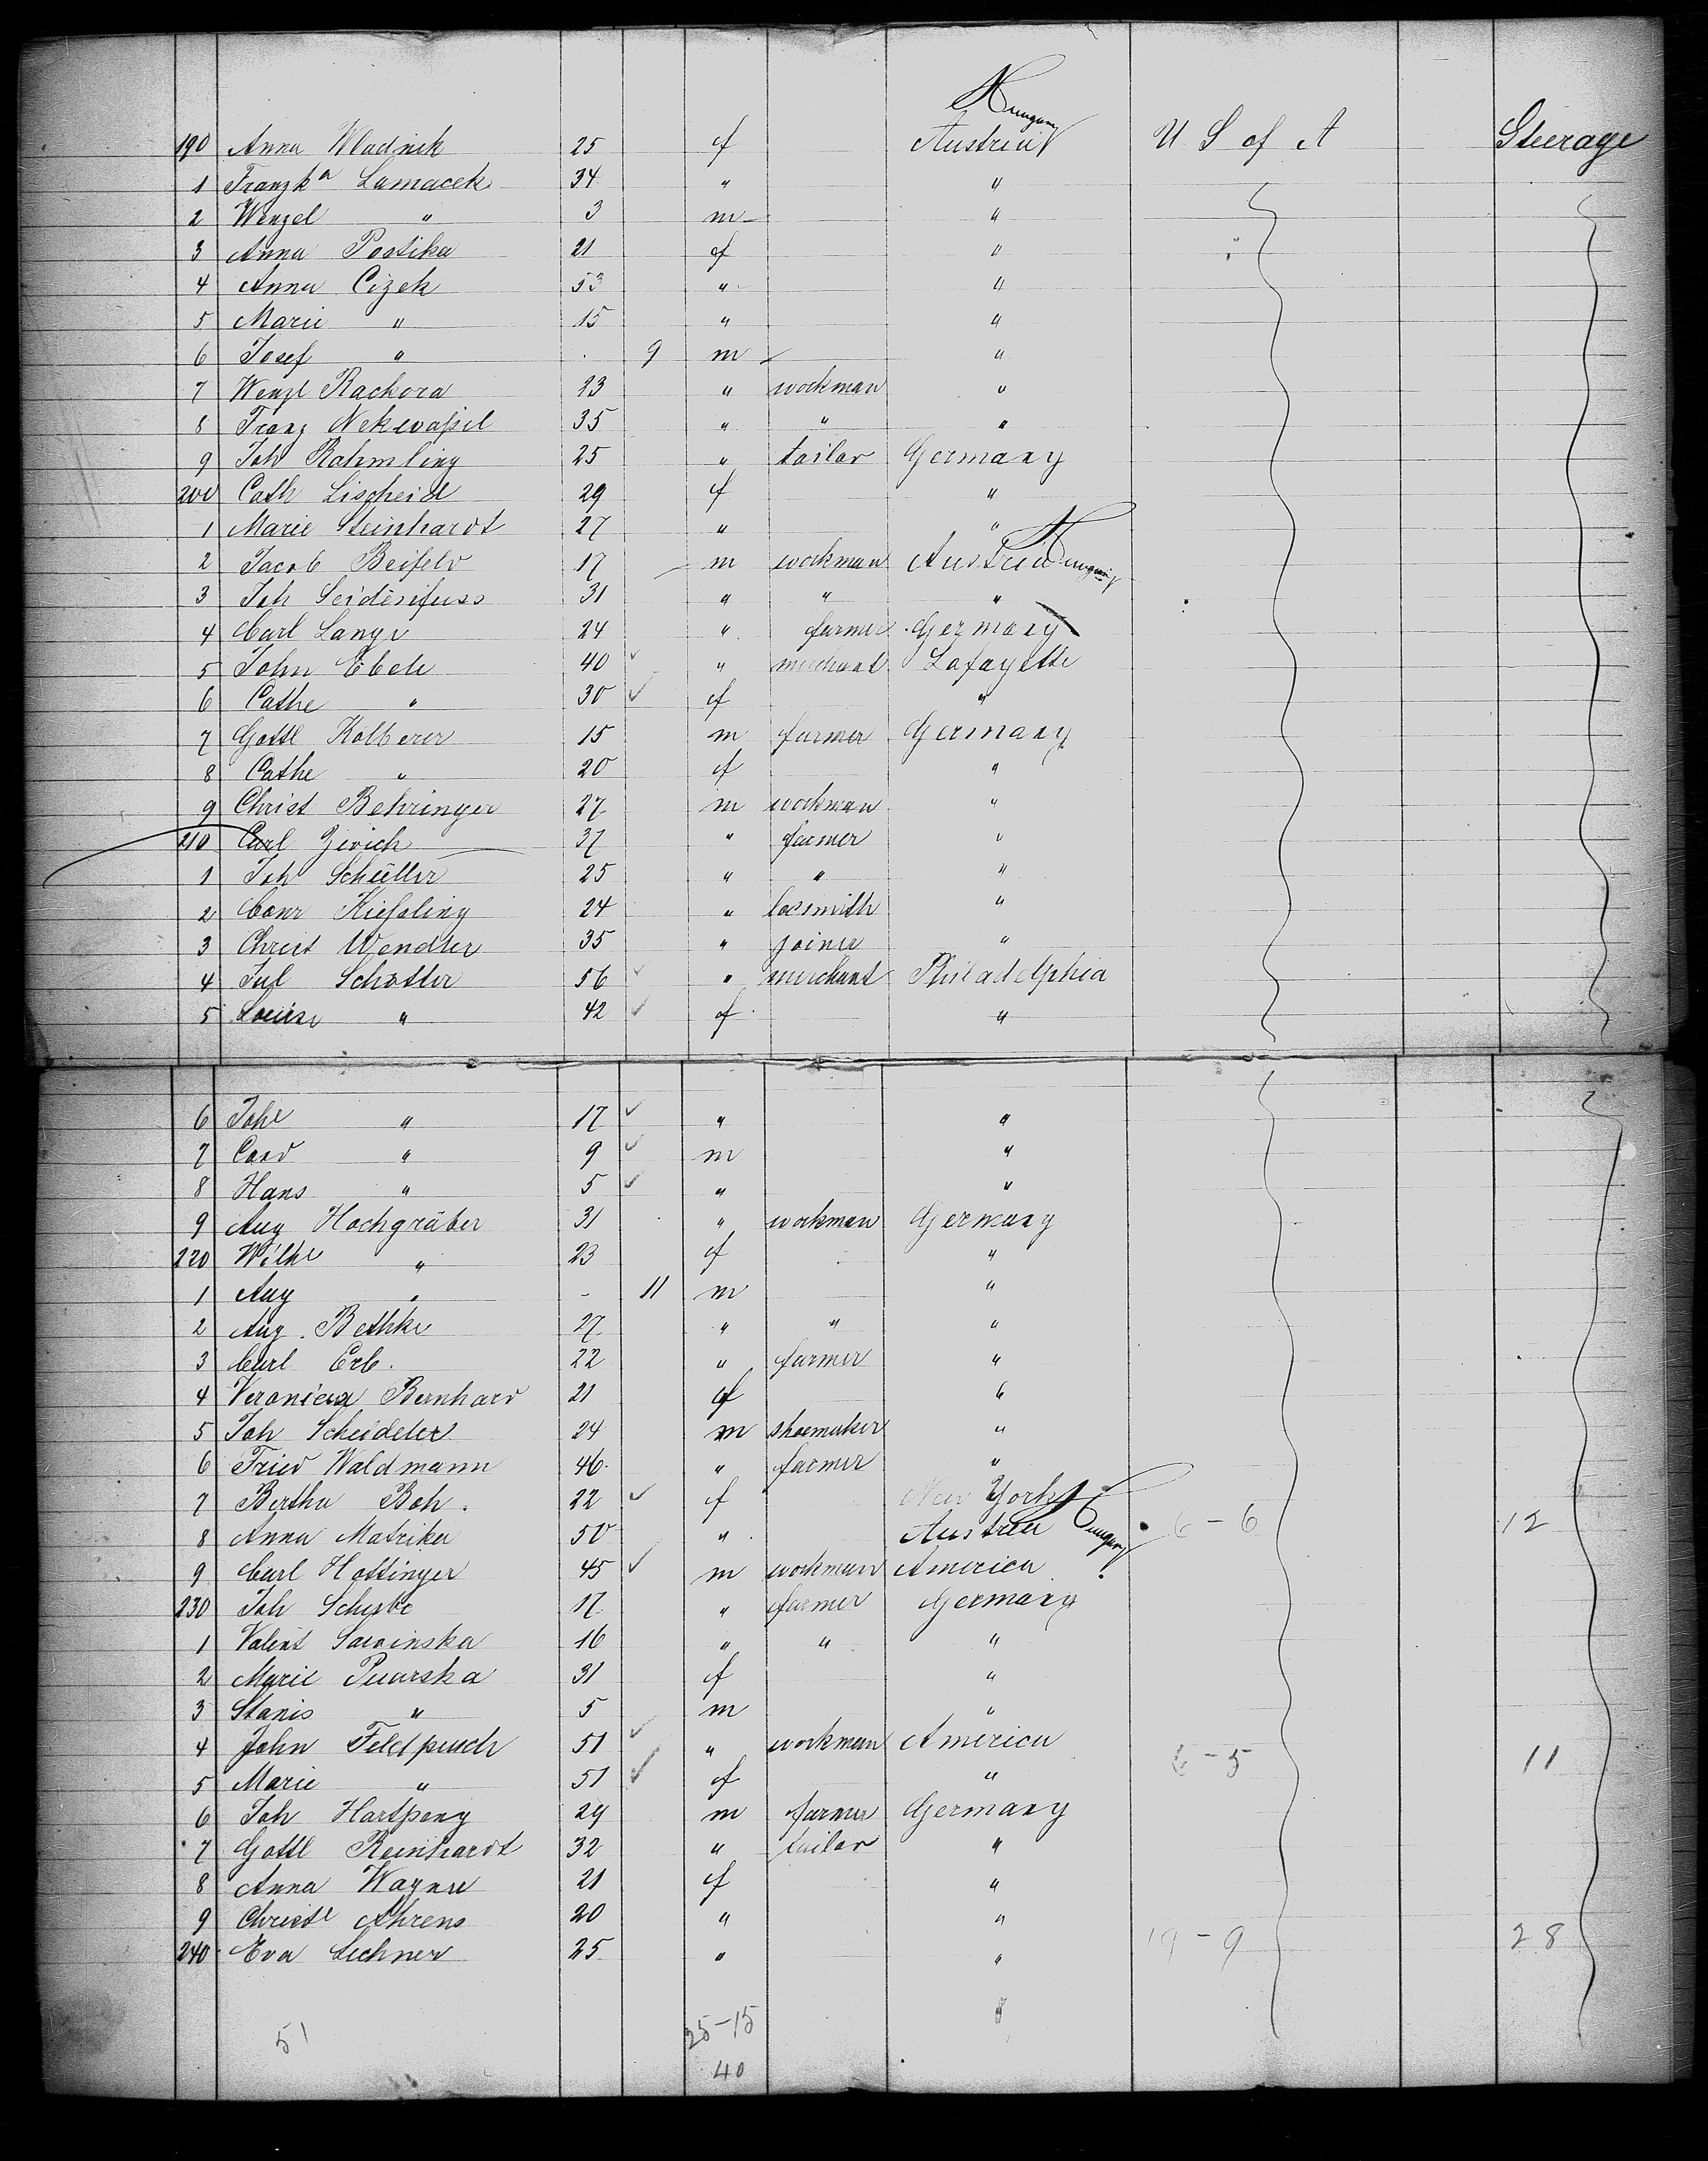 Hungary
190 Anna Wladnik 25 f Austria U S of A Steerage
1 Franzka Lamacek 34 " "
2 Wenzel " 3 m "
3 Anna Postika 21 f "
4 Anna Cizek 53 " "
5 Marie " 15 " "
6 Josef " 9 m "
7 Wenzl Rackora 23 " workman "
8 Franz Nekwaßil 35 " " "
9 Joh Rahmling 25 " tailor Germany
200 Cath Lischeid 29 f "
1 Marie Steinhardt 27 " "
2 Jacob 17 m workman Austria Hungary
3 Joh Seidenfuss 31 " " "
4 Carl Lange 24 " farmer Germany
5 John Ebele 40 " merchant Lafayette
6 Cathe " 30 f "
7 Gottl Kolberer 15 m farmer Germany
8 Cathe " 20 f "
9 Christ Behringer 27 m workman "
210 Carl 37 " farmer "
1 Joh Schüller 25 " " "
2 Conr Kießling 24 " locsmith "
3 Christ Wendler 35 " joiner "
4 Jul Schotler 56 " merchant Philadelphia
5 Louise " 42 f "
6 Johe " 17 " "
7 Cord " 9 m "
8 Hans " 5 " "
9 Aug Hochgräber 31 " workman Germany
220 Wilhe " 23 f "
1 Aug " - 11 m "
2 Aug. Bethke 27 " " "
3 Carl Erb. 22 " farmer "
4 Veronica Bernhard 21 f "
5 Joh Scheideler 24 m shoemaker "
6 Fried Waldmann 46 " farmer "
7 Bertha Boh. 22 f New York
8 Anna Matrika 50 " Austria Hungary 6-6 12
9 Carl Hottinger 45 m workman America
230 Joh 17 " farmer Germany
1 Valent Sawinska 16 " " "
2 Marie 31 f "
3 Stanis " 5 m "
4 John Feldpusch 51 " workman America
5 Marie " 51 f " 6-5 11
6 Joh Hartpeng 29 m farmer Germany
7 Gottl Reinhardt 32 " tailor "
8 Anna Wagner 21 f "
9 Christe Ahrens 20 " "
240 Eva Lechner 25 " " 19-9 28
51 25-15
40